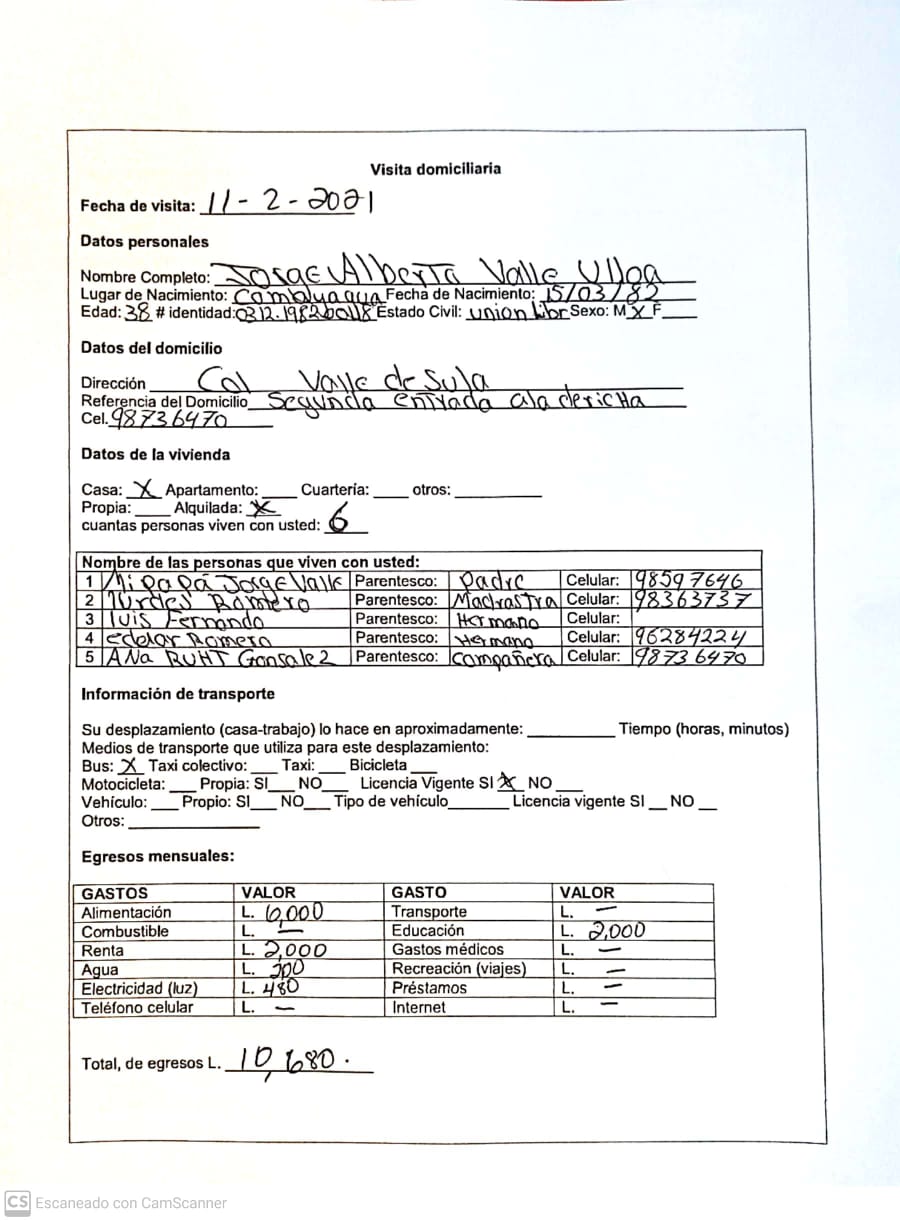 Visita domiciliaria
Fecha de visita: 11-2-2021
Datos personales
Nombre Completo: Jorge Alberto Valle Ulloa
Lugar de Nacimiento: Comayagua Fecha de Nacimiento: 15/03/82
Edad: 38 # identidad: Estado Civil: union libr Sexo: M X F
Datos del domicilio
Dirección Col Valle de Sula
Referencia del Domicilio Segunda entrada ala dericha
Cel. 98736470
Datos de la vivienda
Casa: X Apartamento: Cuartería: otros:
Propia: Alquilada: X
cuantas personas viven con usted: 6
Nombre de las personas que viven con usted:
1 Mi papá Jorge Valle Parentesco: Padre Celular: 98597646
2 lurdes Romero Parentesco: Madrastra Celular: 98363737
3 luis Fernando Parentesco: Hermano Celular:
4 Romero Parentesco: Hermano Celular: 96284224
5 ANa RUHT Gonsalez Parentesco: compañera Celular: 98736470
Información de transporte
Su desplazamiento (casa-trabajo) lo hace en aproximadamente: Tiempo (horas, minutos)
Medios de transporte que utiliza para este desplazamiento:
Bus: X Taxi colectivo: Taxi: Bicicleta
Motocicleta: Propia: SI NO Licencia Vigente SI X NO
Vehículo: Propio: SI NO Tipo de vehículo Licencia vigente SI NO
Otros:
Egresos mensuales:
GASTOS VALOR GASTO VALOR
Alimentación L. 6,000 Transporte L. —
Combustible L. — Educación L. 2,000
Renta L. 2,000 Gastos médicos L. —
Agua L. 200 Recreación (viajes) L. —
Electricidad (luz) L. 480 Préstamos L. —
Teléfono celular L. — Internet L. —
Total, de egresos L. 10,680.
CS Escaneado con CamScanner